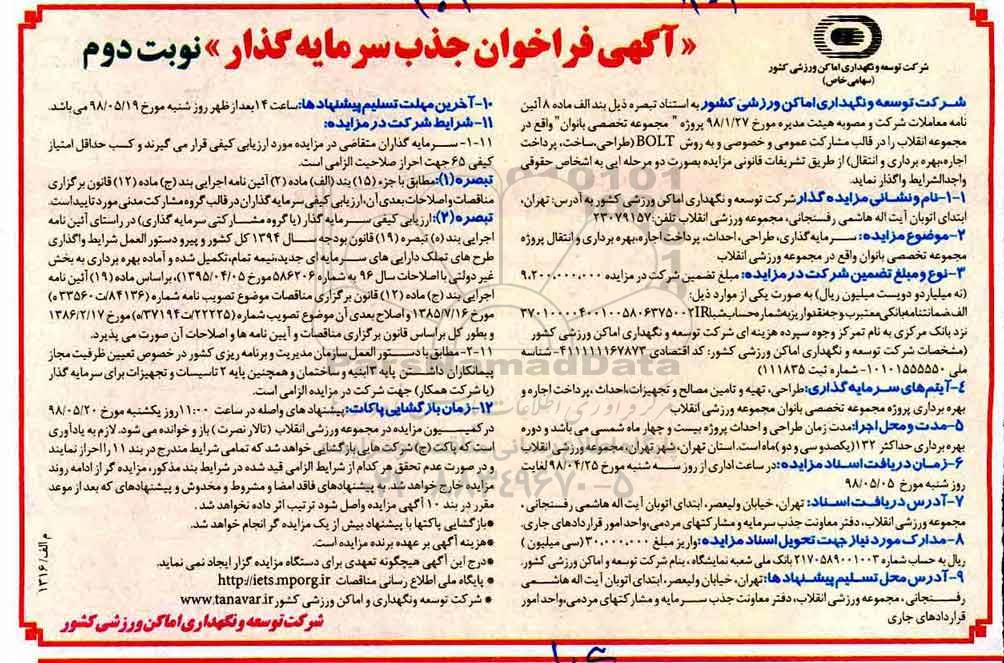 «آگهی فراخوان جذب سرمایه گذار» نوبت دوم
شرکت توسعه ونگهداری اماکن ورزشی کشور
(سهامی خاص)
شرکت توسعه و نگهداری اماکن ورزشی کشور به استناد تبصره ذیل بند الف ماده ۸ آئین
نامه معاملات شرکت و مصوبه هیئت مدیره مورخ ۹۸/۱/۲۷ پروژه " مجموعه تخصصی بانوان" واقع در
مجموعه انقلاب را در قالب مشارکت عمومی و خصوصی و به روش BOLT (طراحی،ساخت، پرداخت
اجاره،بهره برداری و انتقال) از طریق تشریفات قانونی مزایده بصورت دو مرحله ایی به اشخاص حقوقی
واجدالشرایط واگذار نماید.
۱-۱-نام و نشانی مزایده گذار:شرکت توسعه و نگهداری اماکن ورزشی کشور به آدرس: تهران،
ابتدای اتوبان آیت اله هاشمی رفسنجانی، مجموعه ورزشی انقلاب تلفن:۲۳۰۷۹۱۵۷
۲-موضوع مزایده: سرمایه گذاری، طراحی، احداث، پرداخت اجاره،بهره برداری و انتقال پروژه
مجموعه تخصصی بانوان واقع در مجموعه ورزشی انقلاب
۳-نوع و مبلغ تضمین شرکت در مزایده: مبلغ تضمین شرکت در مزایده ۹،۲۰۰،۰۰۰،۰۰۰
(نه میلیارد و دویست میلیون ریال) به صورت یکی از موارد ذیل:
الف:ضمانتنامه بانکی معتبر ب:وجه نقد واریز به شماره حساب شبا IR۳۷۰۱۰۰۰۰۴۰۰۱۰۰۵۸۰۶۳۷۵۰۰۲
نزد بانک مرکزی به نام تمرکز وجوه سپرده هزینه ای شرکت توسعه و نگهداری اماکن ورزشی کشور
(مشخصات شرکت توسعه و نگهداری اماکن ورزشی کشور: کد اقتصادی ۴۱۱۱۱۱۱۶۷۸۷۳- شناسه
ملی ۱۰۱۰۱۵۵۵۵۵۰- شماره ثبت ۱۱۱۸۳۵)
۴-آیتم های سرمایه گذاری:طراحی، تهیه و تامین مصالح و تجهیزات،احداث ،پرداخت اجاره و
بهره برداری پروژه مجموعه تخصصی بانوان مجموعه ورزشی انقلاب
۵-مدت و محل اجرا:مدت زمان طراحی و احداث پروژه بیست و چهار ماه شمسی می باشد و دوره
بهره برداری حداکثر ۱۳۲(یکصدو سی و دو)ماه است. استان تهران، شهر تهران، مجموعه ورزشی انقلاب
۶-زمان دریافت اسناد مزایده:در ساعت اداری از روز سه شنبه مورخ ۹۸/۰۴/۲۵ لغایت
روز شنبه مورخ ۹۸/۰۵/۰۵
۷-آدرس دریافت اسناد: تهران، خیابان ولیعصر، ابتدای اتوبان آیت اله هاشمی رفسنجانی ،
مجموعه ورزشی انقلاب، دفتر معاونت جذب سرمایه و مشارکتهای مردمی،واحد امور قراردادهای جاری.
۸-مدارک مورد نیاز جهت تحویل اسناد مزایده:واریز مبلغ ۳۰،۰۰۰،۰۰۰ (سی میلیون )
ریال به حساب شماره ۲۱۷۰۵۸۹۰۰۱۰۰۳ بانک ملی شعبه نمایشگاه ، بنام شرکت توسعه و اماکن ورزشی کشور.
۹-آدرس محل تسلیم پیشنهادها:تهران، خیابان ولیعصر، ابتدای اتوبان آیت اله هاشمی
رفسنجانی ، مجموعه ورزشی انقلاب، دفتر معاونت جذب سرمایه و مشارکتهای مردمی،واحد امور
قراردادهای جاری
۱۰-آخرین مهلت تسلیم پیشنهادها:ساعت ۱۴ بعد از ظهر روز شنبه مورخ ۹۸/۰۵/۱۹ می باشد.
۱۱-شرایط شرکت در مزایده:
۱-۱۱- سرمایه گذاران متقاضی در مزایده مورد ارزیابی کیفی قرار می گیرند و کسب حداقل امتیاز
کیفی ۶۵ جهت احراز صلاحیت الزامی است.
تبصره(۱):مطابق با جزء (۱۵) بند (الف) ماده (۲) آئین نامه اجرایی بند (ج) ماده (۱۲) قانون برگزاری
مناقصات و اصلاحات بعدی آن، ارزیابی کیفی سرمایه گذاران در قالب گروه مشارکت مدنی مورد تایید است.
تبصره(۲):ارزیابی کیفی سرمایه گذار (یا گروه مشارکتی سرمایه گذاری) در راستای آئین نامه
اجرایی بند (ه) تبصره (۱۹) قانون بودجه سال ۱۳۹۴ کل کشور و پیرو دستور العمل شرایط واگذاری
طرح های تملک دارایی های سرمایه ای جدید،نیمه تمام، تکمیل شده و آماده بهره برداری به بخش
غیر دولتی با اصلاحات سال ۹۶ به شماره ۵۸۶۲۰۶ مورخ ۱۳۹۵/۰۴/۰۵)، براساس ماده (۱۹) آئین نامه
اجرایی بند (ج) ماده (۱۲) قانون برگزاری مناقصات موضوع تصویب نامه شماره (۸۴۱۳۶/ت۳۳۵۶۰ه)
مورخ ۱۳۸۵/۷/۱۶ و اصلاح بعدی آن موضوع تصویب شماره (۲۲۲۲۵/ت۳۷۱۹۴ه) مورخ ۱۳۸۶/۲/۱۷
و بطور کل بر اساس قانون برگزاری مناقصات و آیین نامه ها و اصلاحات آن صورت می پذیرد.
۱۱-۲-مطابق با دستور العمل سازمان مدیریت و برنامه ریزی کشور در خصوص تعیین ظرفیت مجاز
پیمانکاران داشتن پایه ۳ ابنیه و ساختمان و همچنین پایه ۲ تاسیسات و تجهیزات برای سرمایه گذار
(یا شرکت همکار) جهت شرکت در مزایده الزامی است.
۱۲-زمان بازگشایی پاکات:پیشنهادهای واصله در ساعت ۱۱:۰۰ روز یکشنبه مورخ ۹۸/۰۵/۲۰
در کمیسیون مزایده در مجموعه ورزشی انقلاب (تالار نصرت ) باز و خوانده می شود. لازم به یادآوری
است که پاکت (ج) شرکت هایی بازگشایی خواهد شد که تمامی شرایط مندرج در بند ۱۱ را احراز نمایند
و در صورت عدم تحقق هر کدام از شرایط الزامی قید شده در شرایط بند مذکور، مزایده گر از ادامه روند
مزایده خارج خواهد شد. به پیشنهادهای فاقد امضا و مشروط و مخدوش و پیشنهادهای که بعد از موعد
مقرر در بند ۱۰ آگهی مزایده واصل شود ترتیب اثر داده نخواهد شد.
●بازگشایی پاکتها با پیشنهاد بیش از یک مزایده گر انجام خواهد شد.
●هزینه آگهی بر عهده برنده مزایده است.
●درج این آگهی هیچگونه تعهدی برای دستگاه مزایده گزار ایجاد نمی نماید.
● پایگاه ملی اطلاع رسانی مناقصات http://iets.mporg.ir
● شرکت توسعه ونگهداری و اماکن ورزشی کشور www.tanavar.ir
شرکت توسعه و نگهداری اماکن ورزشی کشور
م الف/۱۳۱۶
AriaMadData
۰۲۱-۸۸۳۴۹۶۷۰-۵